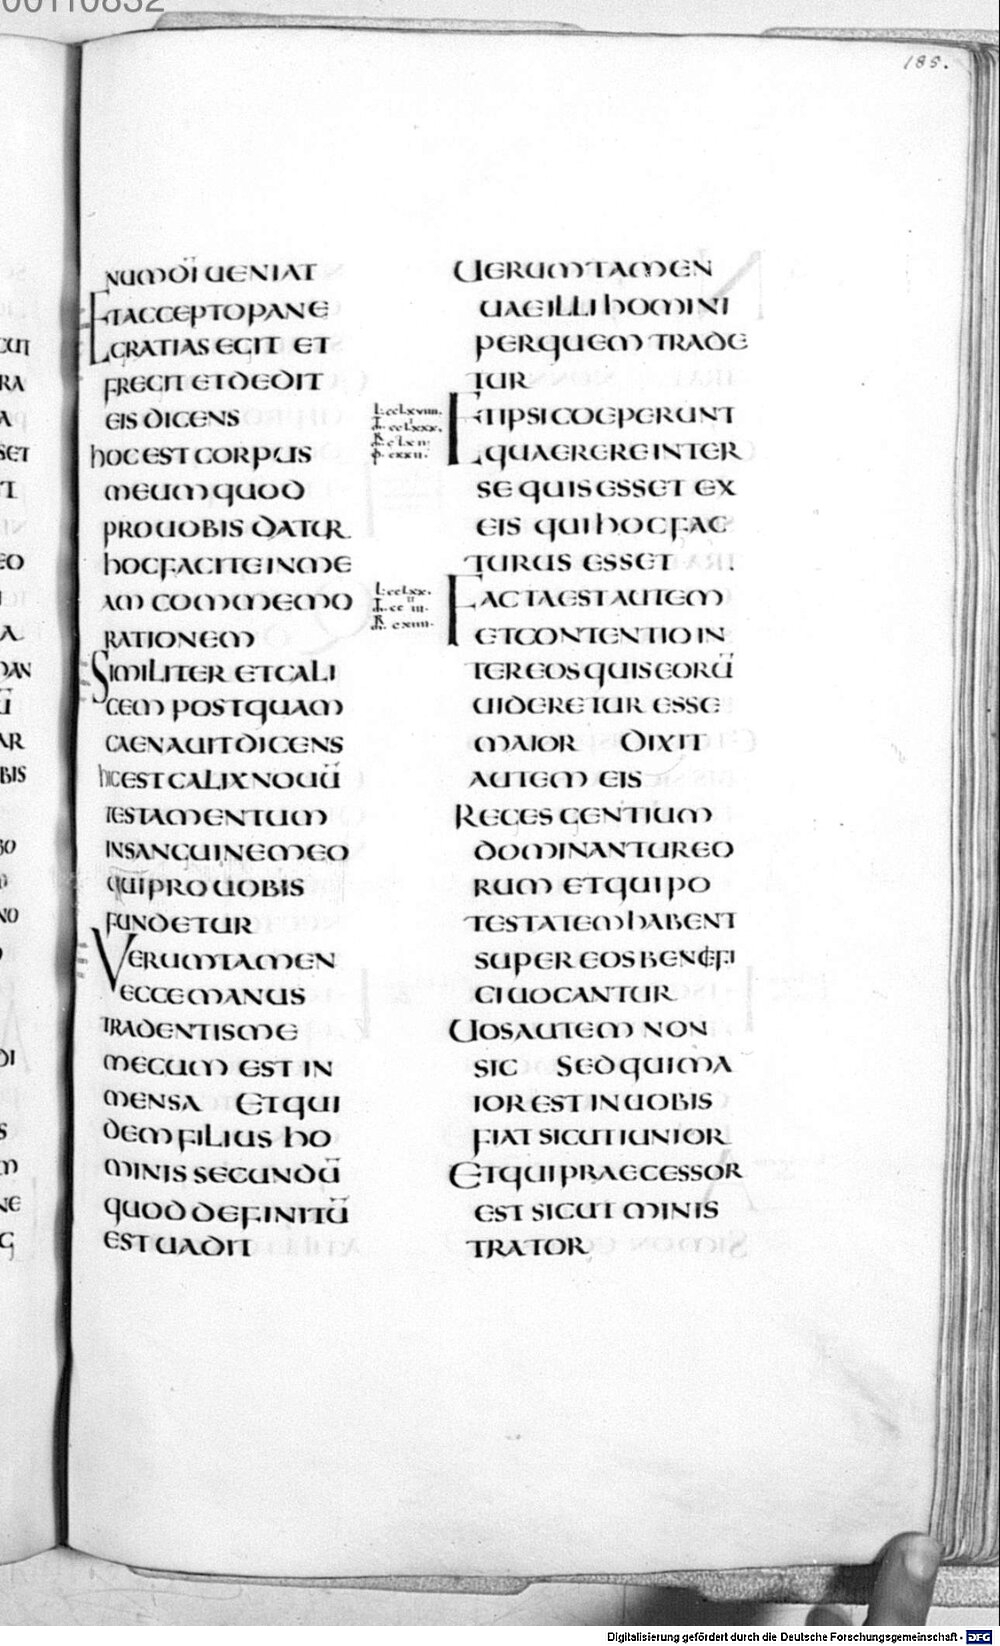 00110832
185.
NUM DI UENIAT
ET ACCEPTO PANE
GRATIAS EGIT ET
FREGIT ET DEDIT
EIS DICENS
HOC EST CORPUS
MEUM QUOD
PRO UOBIS DATUR
HOC FACITE IN ME
AM COMMEMO
RATIONEM
SIMILITER ET CALI
CEM POSTQUAM
CAENAUIT DICENS
HIC EST CALIX NOUŪ
TESTAMENTUM
IN SANGUINE MEO
QUI PRO UOBIS
FUNDETUR
VERUMTAMEN
ECCE MANUS
TRADENTIS ME
MECUM EST IN
MENSA ET QUI
DEM FILIUS HO
MINIS SECUNDŪ
QUOD DEFINITŪ
EST UADIT
UERUMTAMEN
UAE ILLI HOMINI
PER QUEM TRADE
TUR
L. cclxviiii.
ET IPSI COEPERUNT
QUAERERE INTER
SE QUIS ESSET EX
EIS QUI HOC FAC
TURUS ESSET
L. cclxx.
FACTA EST AUTEM
ET CONTENTIO IN
TER EOS QUIS EORŪ
UIDERETUR ESSE
MAIOR DIXIT
AUTEM EIS
REGES GENTIUM
DOMINANTUR EO
RUM ET QUI PO
TESTATEM HABENT
SUPER EOS BENEFI
CI UOCANTUR
UOS AUTEM NON
SIC SED QUI MA
IOR EST IN UOBIS
FIAT SICUT IUNIOR
ET QUI PRAECESSOR
EST SICUT MINIS
TRATOR
Digitalisierung gefördert durch die Deutsche Forschungsgemeinschaft - DFG